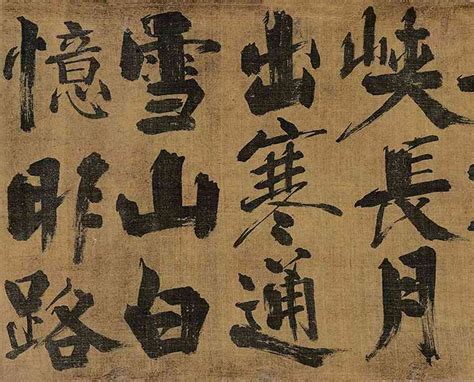 峽長月
出寒通
雪山白
憶昨路